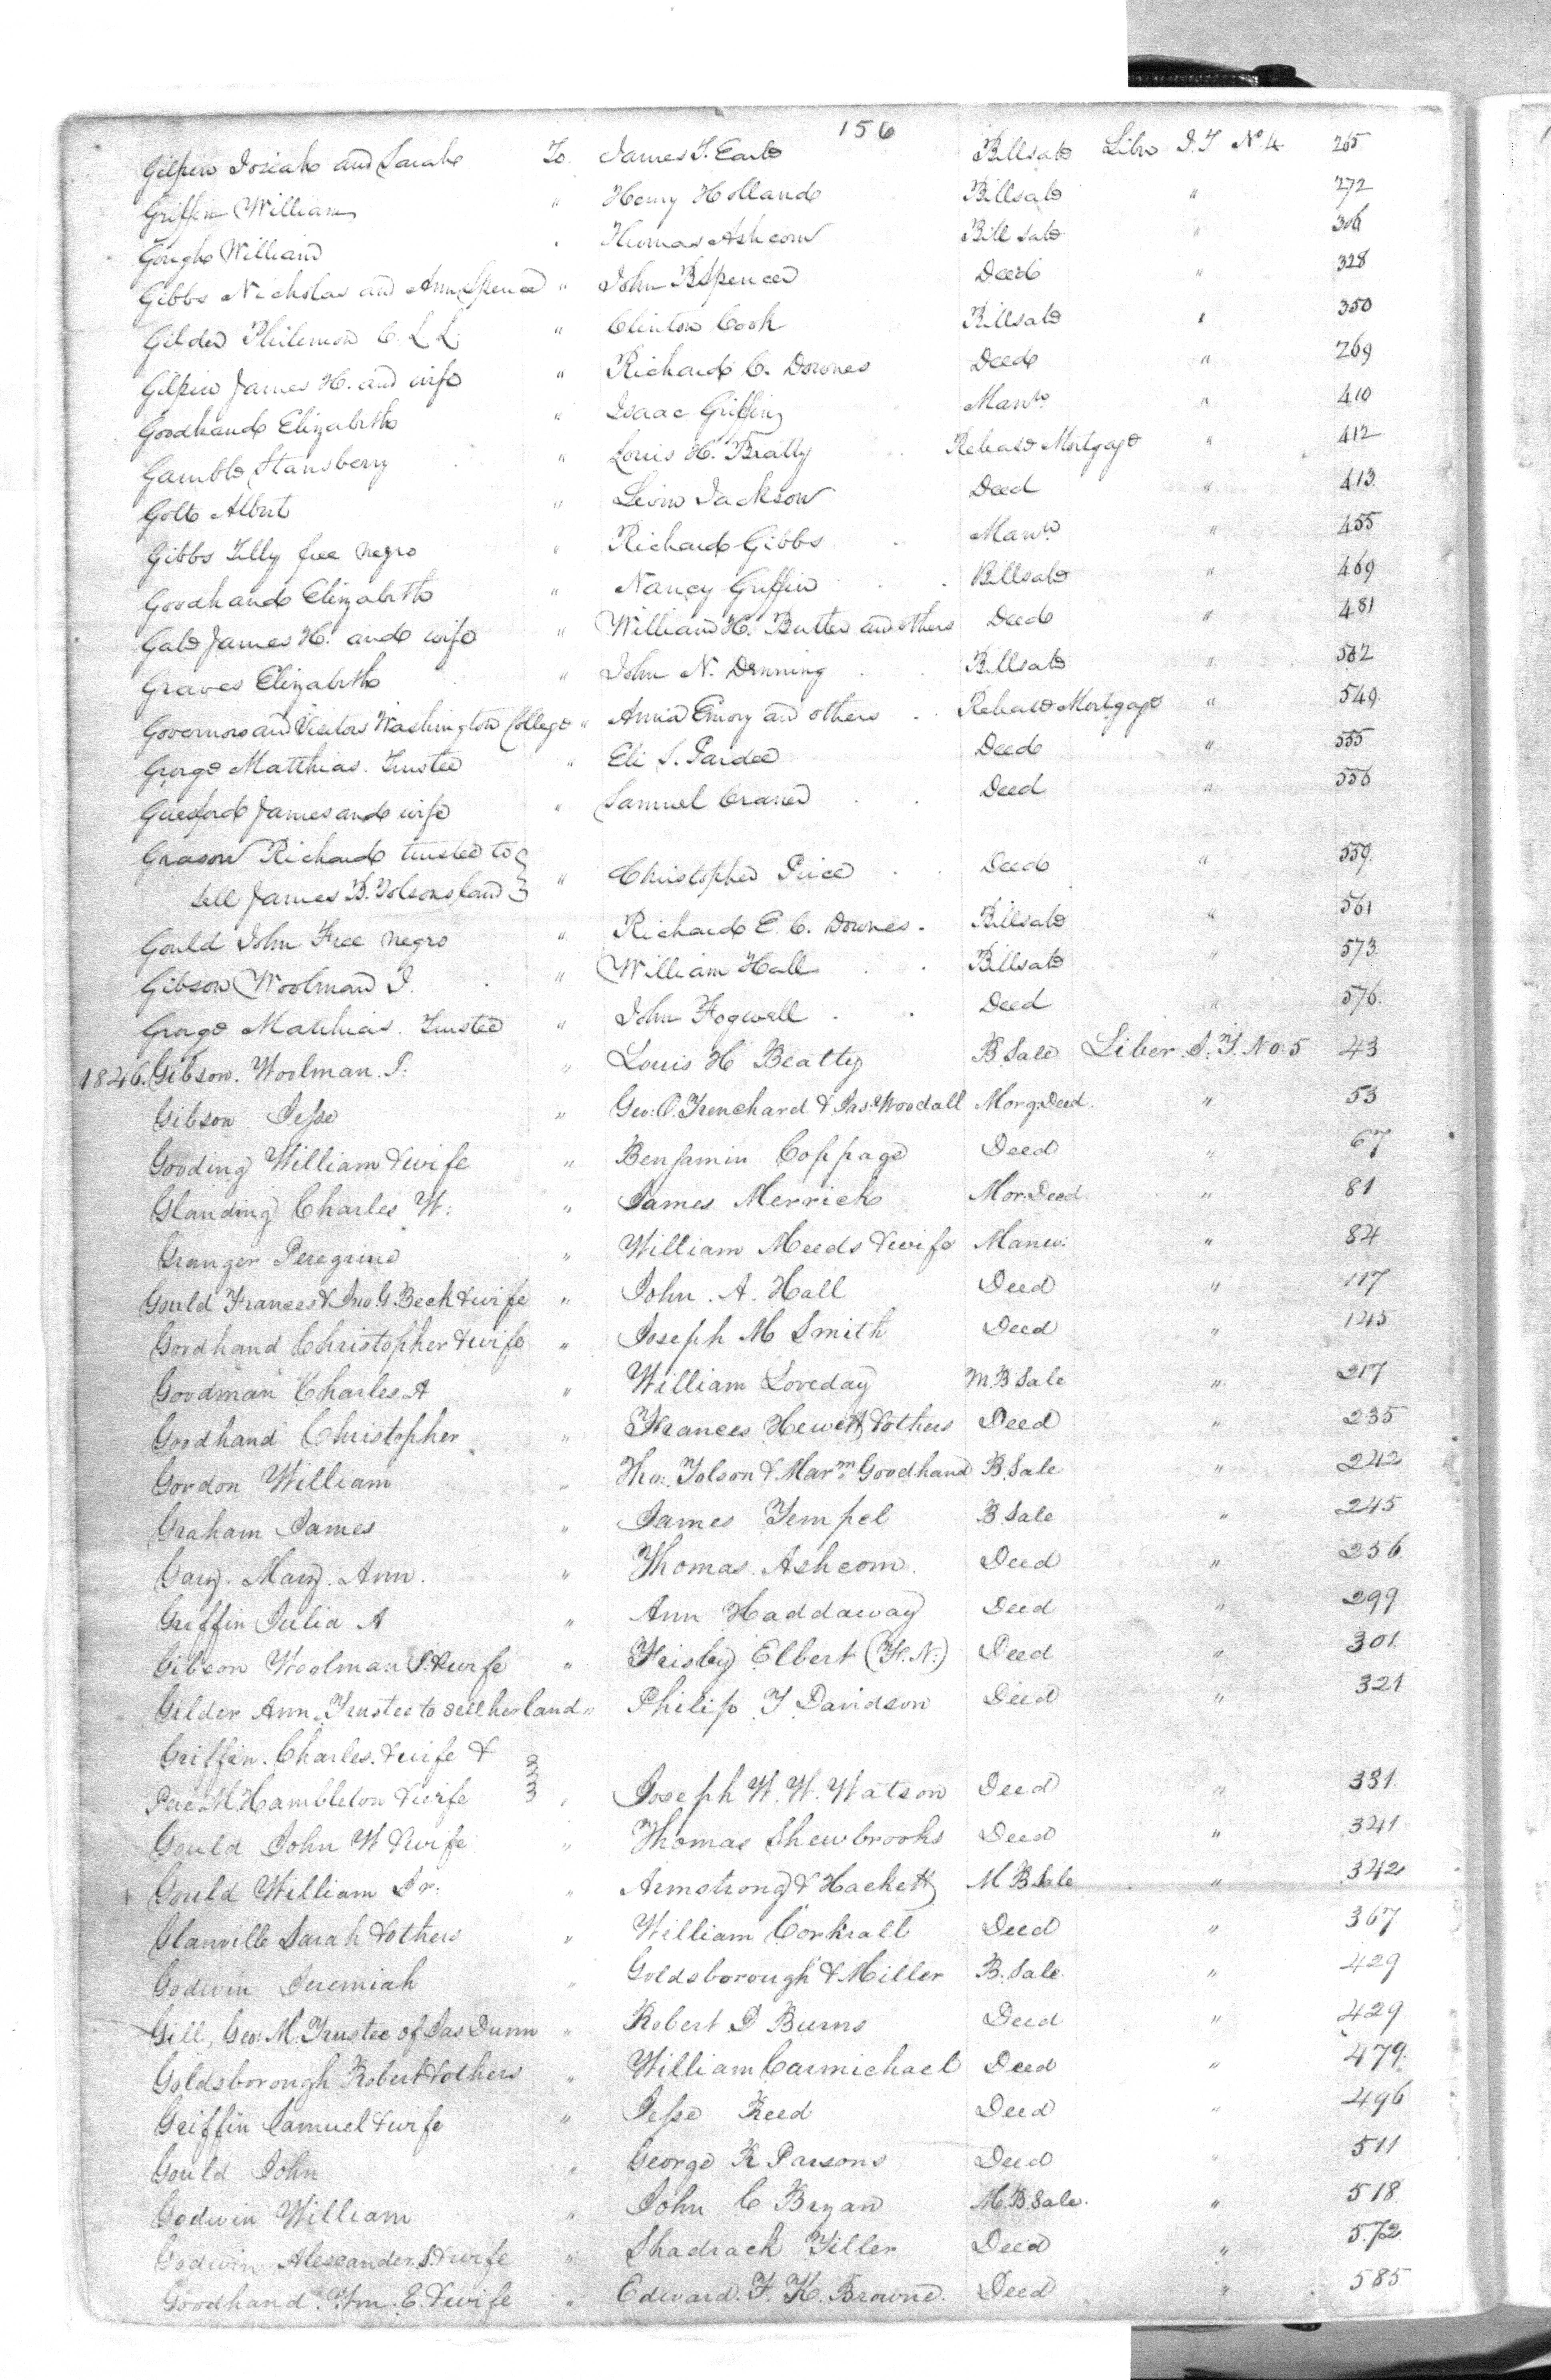 156
Gilpin Josiah and Sarah To James T. Earle Billsale Liber J.T No. 4 265
Griffin William " Henry Holland Billsale " 272
Gough William " Thomas Ashcom Bill sale " 306
Gibbs Nicholas and Ann Spence " John B Spencer Deed " 328
Gilder Philemon C. L L. " Clinton Cook Billsale " 350
Gilpin James H. and wife " Richard C. Downes Deed " 269
Goodhand Elizabeth " Isaac Griffin Manu. " 410
Gamble Stansberry " Louis H. Beatty Release Mortgage " 412
Golt Albert " Jackson Deed " 413
Gibbs Tilly free negro " Richard Gibbs Manu. " 455
Goodhand Elizabeth " Nancy Griffin Billsale " 469
Gale James H. and wife " William H. Butler and others Deed " 481
Graves Elizabeth " John N. Denning Billsale " 502
Governors and Visitors Washington College " Anna Emory and others Release Mortgage " 549
George Matthias. Trustee " Eli S. Pardee Deed " 555
Guesford James and wife " Samuel Craner Deed " 556
Grason Richard trustee to
sell James B. Tolsons land " Christopher Price Deed " 559
Gould John Free negro " Richard E. C. Downes. Billsale " 561
Gibson Woolman J. " William Hall Billsale " 573
George Matthias. Trustee " John Fogwell Deed " 576.
1846. Gibson. Woolman. J: " Louis H Beatty B Sale Liber J. T. No. 5 43
Gibson Jesse " Geo: O. Trenchard & Jas: Woodall Morg: Deed. " 53
Gooding William & wife " Benjamin Coppage Deed " 67
Glanding Charles W: " James Merrick Mor: Deed " 81
Granger Peregrine " William Meeds & wife Manu: " 84
Gould Frances & Jno. G. Beck & wife " John. A. Hall Deed " 117
Goodhand Christopher & wife " Joseph M Smith Deed " 145
Goodman Charles A " William Loveday M. B Sale " 217
Goodhand Christopher " Frances Hewett & others Deed " 235
Gordon William " Tho: Tolson & Marm Goodhand B. Sale " 242
Graham James " James Tempel B. Sale " 245
Gary. Mary. Ann. " Thomas. Ashcom. Deed " 256
Griffin Julia A " Ann Haddaway Deed " 299
Gibson Woolman J. & wife " Frisby Elbert (F. N:) Deed " 301
Gilder Ann. Trustee to sell her land " Philip T Davidson Deed " 321
Griffin. Charles. & wife &
Pere M. Hambleton & wife " Joseph W. W. Watson Deed " 331
Gould John W & wife " Thomas Shewbrooks Deed " 341
Gould William Sr. " Armstrong & Hackett M B Sale " 342
Glanville Sarah & others " William Corkrall Deed " 367
Godwin Jeremiah " Goldsborough & Miller B. Sale " 429
Gill, Geo: M. Trustee of Jas Dunn " Robert D Burns Deed " 429
Goldsborough Robert & others " William Carmichael Deed " 479
Griffin Samuel & wife " Jesse Reed Deed " 496
Gould John " George R Parsons Deed " 511
Godwin William " John C Bryan M. B. Sale. " 518
Godwin Alexander. S. & wife " Shadrach Tiller Deed " 572
Goodhand. Wm. E. & wife " Edward. F. K. Browne. Deed " 585